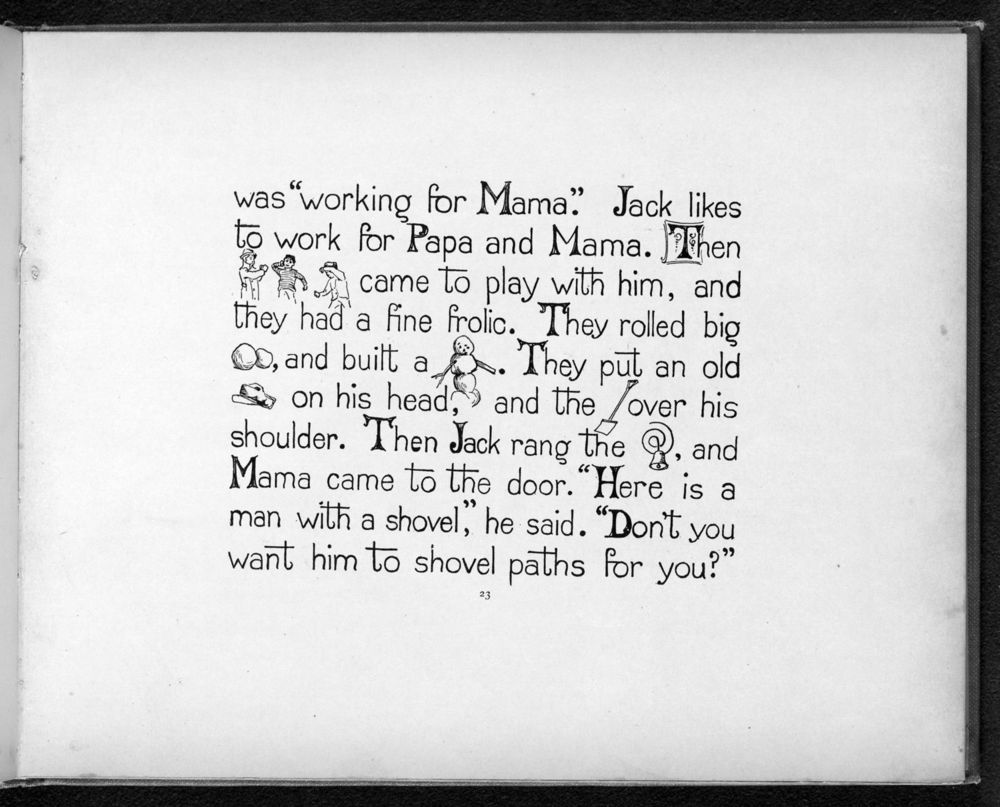 was “working for Mama.” Jack likes
to work for Papa and Mama. Then
came to play with him, and
they had a fine frolic. They rolled big
, and built a . They put an old
on his head, and the over his
shoulder. Then Jack rang the , and
Mama came to the door. “Here is a
man with a shovel,” he said. “Don't you
want him to shovel paths for you?”
23